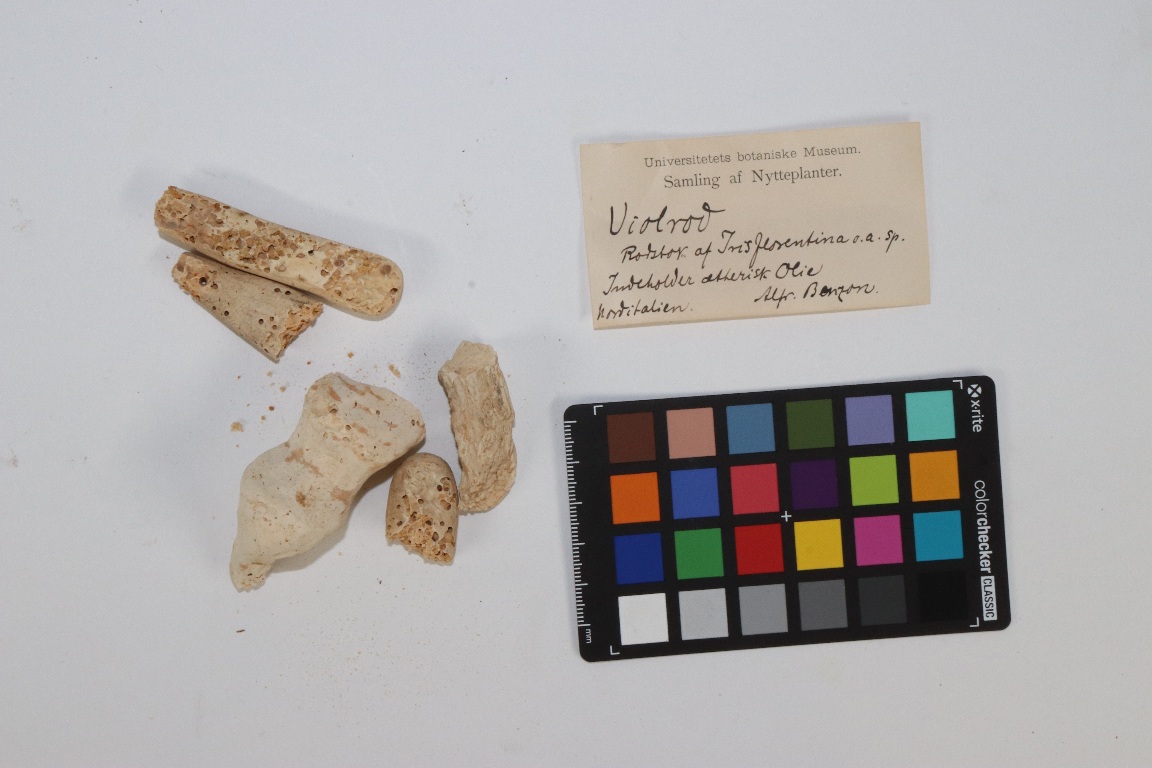 Universitetets botaniske Museum.
Samling af Nytteplanter.
Violrod
Rodstok af Iris florentina o.a. sp.
Indeholder ætherisk Olie
Norditalien. Alfr. Benzon.
x·rite
colorchecker CLASSIC
mm